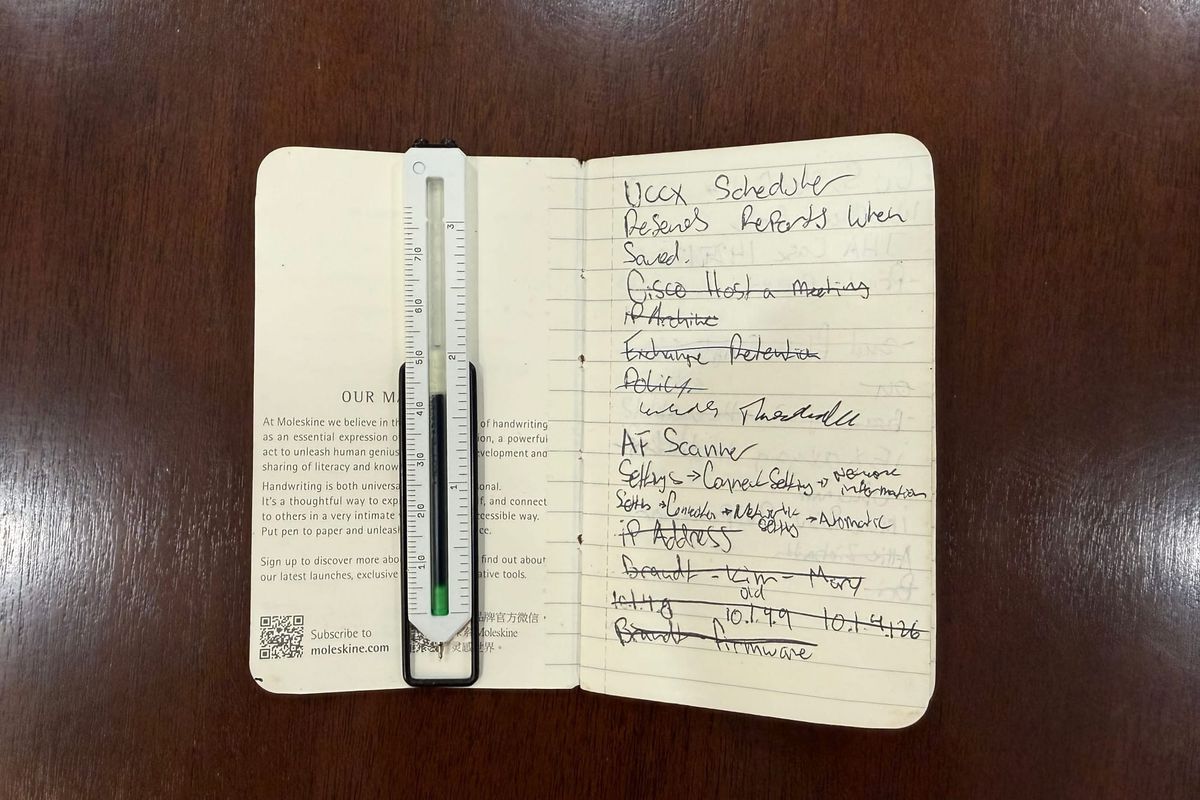 OUR MA
At Moleskine we believe in th of handwriting
as an essential expression o ion, a powerful
act to unleash human genius evelopment and
sharing of literacy and know
Handwriting is both univers onal.
It's a thoughtful way to exp f, and connect
to others in a very intimate ccessible way.
Put pen to paper and unleas ce.
Sign up to discover more abo find out about
our latest launches, exclusive ative tools.
Subscribe to
moleskine.com
牌官方微信，
Moleskine
灵感世界。
7 6 5 4 3 2 1
3 2 1
UCCX Scheduler
Resends Reports When
Saved.
Cisco Host a Meeting
iP Archive
Exchange Retention
Policy.
AF Scanner
Settings → Connect Setting → Network
information
→ Network → Automatic
Setting
iP Address
Brandt - Kim - Mary
old
10.1.4.8 10.1.4.9 10.1.4.126
Brandt firmware